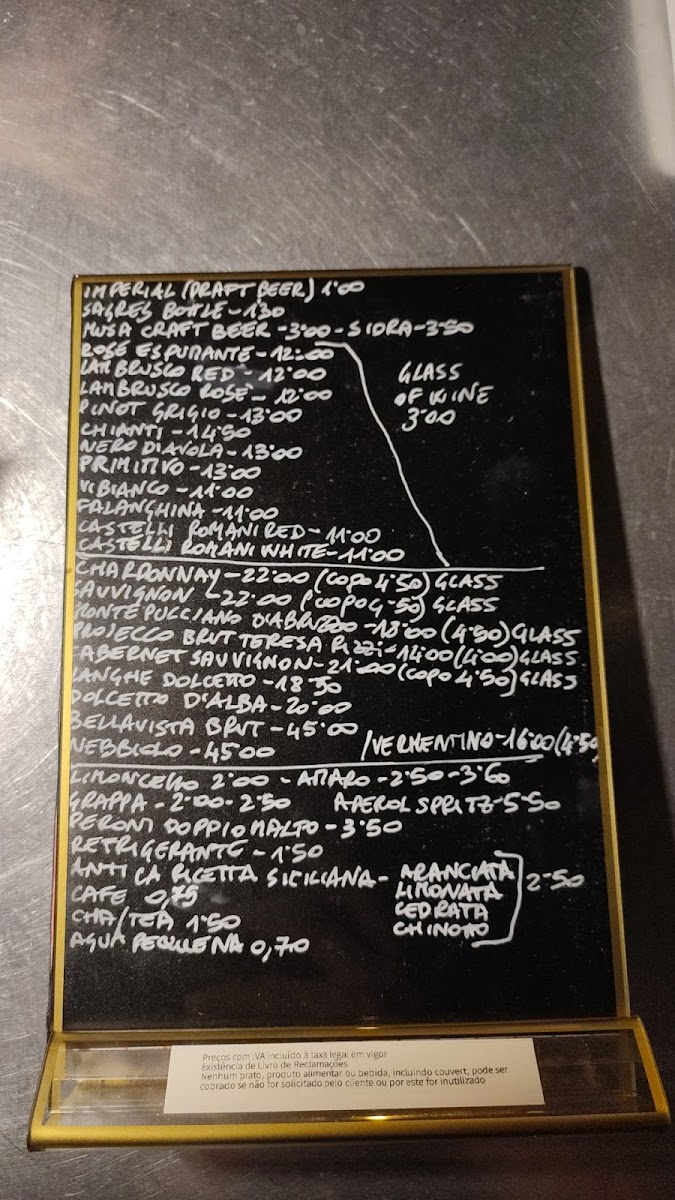 IMPERIAL (DRAFT BEER) 1'00
SAGRES BOTTLE - 1'30
MUSA CRAFT BEER - 3'00 - SIDRA - 3'50
ROSÉ ESPUMANTE - 12:00
LAMBRUSCO RED - 12'00
LAMBRUSCO ROSÉ - 12'00
PINOT GRIGIO - 13'00
CHIANTI - 14'50
NERO DIAVOLA - 13'00
PRIMITIVO - 13'00
VIBIANCO - 11'00
FALANGHINA - 11'00
CASTELLI ROMANI RED - 11'00
CASTELLI ROMANI WHITE - 11'00
GLASS
OF WINE
3'00
CHARDONNAY - 22'00 (COPO 4'50) GLASS
SAUVIGNON - 22'00 (COPO 4'50) GLASS
MONTEPULCIANO D'ABRUZZO - 13'00 (4'50) GLASS
PROSECCO BRUT TERESA RIZZI - 14'00 (4'00) GLASS
CABERNET SAUVIGNON - 21'00 (COPO 4'50) GLASS
LANGHE DOLCETTO - 18'50
DOLCETTO D'ALBA - 20'00
BELLAVISTA BRUT - 45'00
NEBBIOLO - 45'00 /VERMENTINO - 16'00 (4'50)
LIMONCELLO 2'00 - AMARO - 2'50 - 3'60
GRAPPA - 2'00 - 2'50 APEROL SPRITZ - 5'50
PERONI DOPPIO MALTO - 3'50
REFRIGERANTE - 1'50
ANTICA RICETTA SICILIANA - ARANCIATA 2'50
LIMONATA
CEDRATA
CHINOTTO
CAFE 0,75
CHA/TEA 1'50
AGUA PEQUENA 0,70
Preços com IVA incluído à taxa legal em vigor
Existência de Livro de Reclamações
Nenhum prato, produto alimentar ou bebida, incluindo couvert, pode ser
cobrado se não for solicitado pelo cliente ou por este for inutilizado